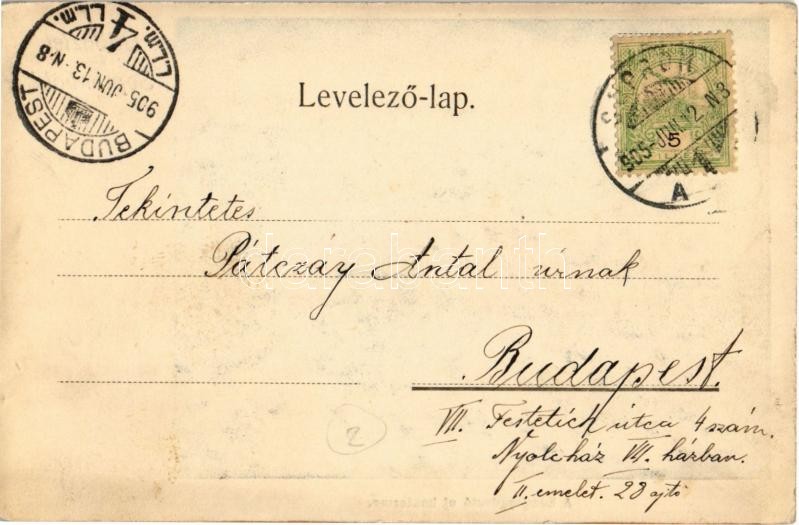 BUDAPEST
905-JUN.13.-N-8
Levelező-lap.
SOPRON
905-JUN.12.N3
5
A
Tekintetes
Pátczáy Antal úrnak
darabanth
Budapest.
VII. Festetich útca 4 szám.
Nyolcház VII. hárban.
II. emelet. 28 ajtó
2